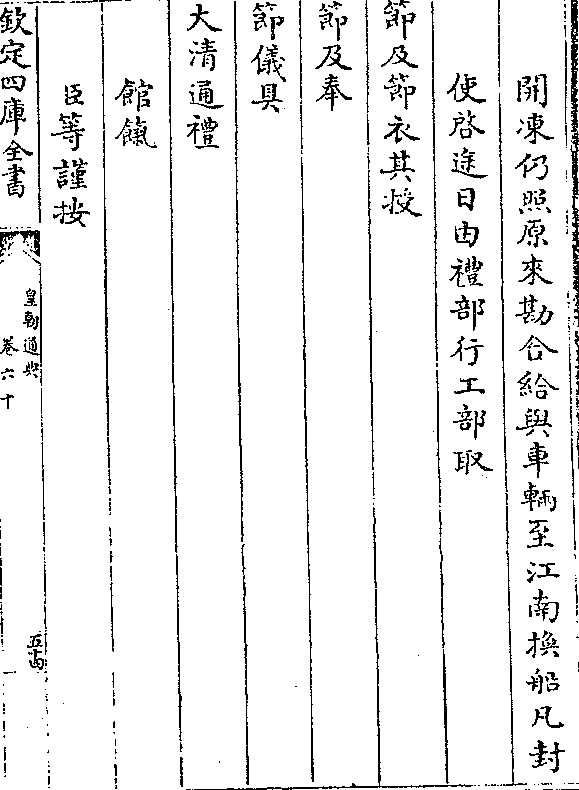 開凍仍照原來勘合給與車輛至江南換船凡封
使啓途日由禮部行工部取
節及節衣其授
節及奉
節儀具
大清通禮
館餼
臣等謹按
欽定四庫全書
皇朝通典
卷六十
五十四